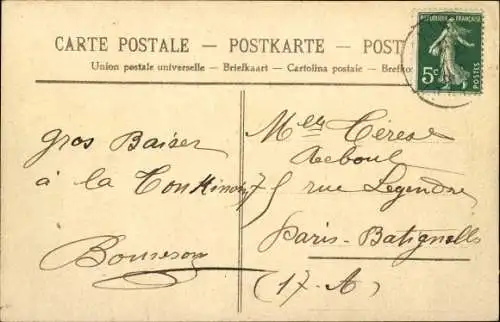 CARTE POSTALE — POSTKARTE — POST
Union postale universelle — Briefkaart — Cartolina postale — Brefko
REPUBLIQUE FRANÇAISE
5c
POSTES
gros Baiser
à la
Melle Térèse
Reboul
75 rue Legendre
Paris-Batignolles
(17-A)